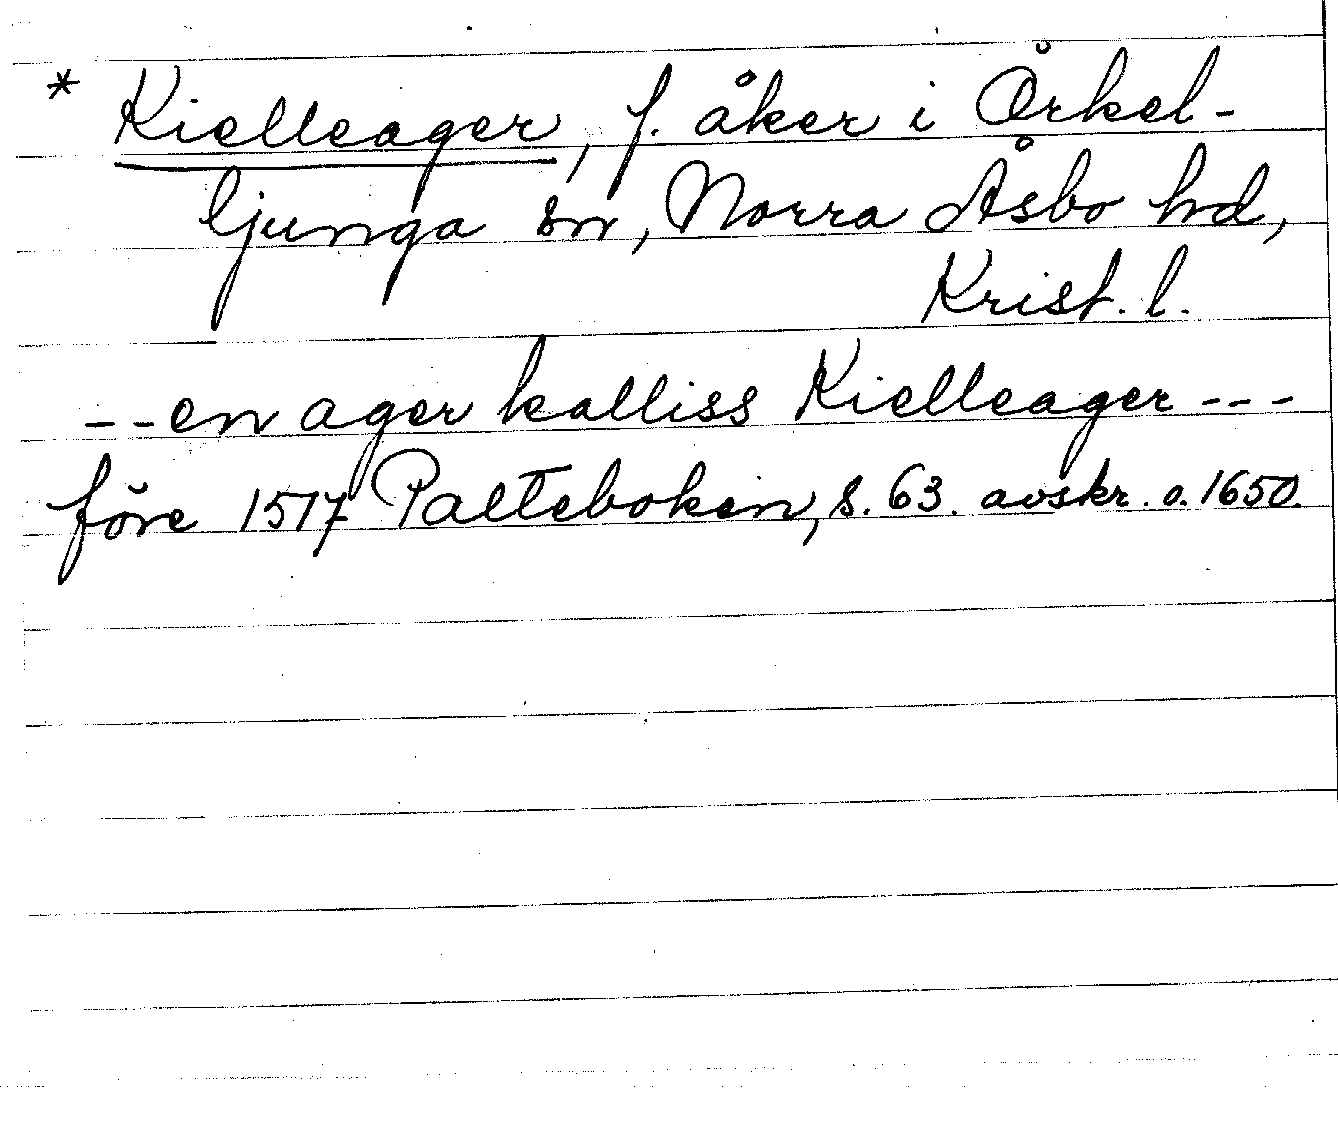 * Kielleager, f. åker i Örkel-
ljunga sn, Norra Åsbo hd,
Krist. l.
--en ager kalliss Kielleager---
före 1517 Palteboken, s. 63. avskr. o. 1650.